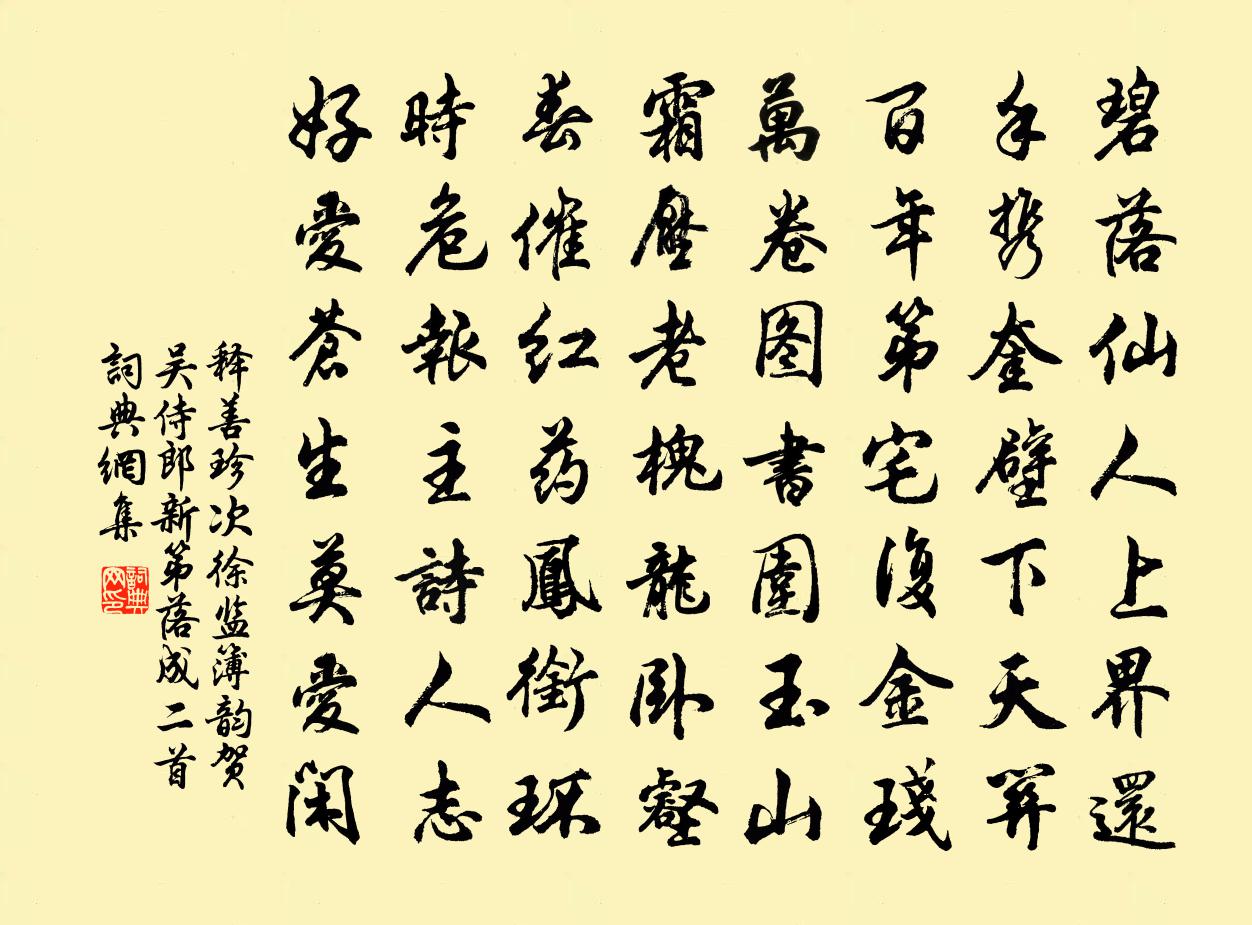 碧落仙人上界還
手携奎壁下天關
百年第宅復金璞
萬卷图書圍玉山
霜壓老槐龍卧壑
春催红药鳳銜環
時危報主詩人志
好愛蒼生莫愛閑
释善珍次徐监簿韵贺
吴侍郎新第落成二首
詞典網集
詞典